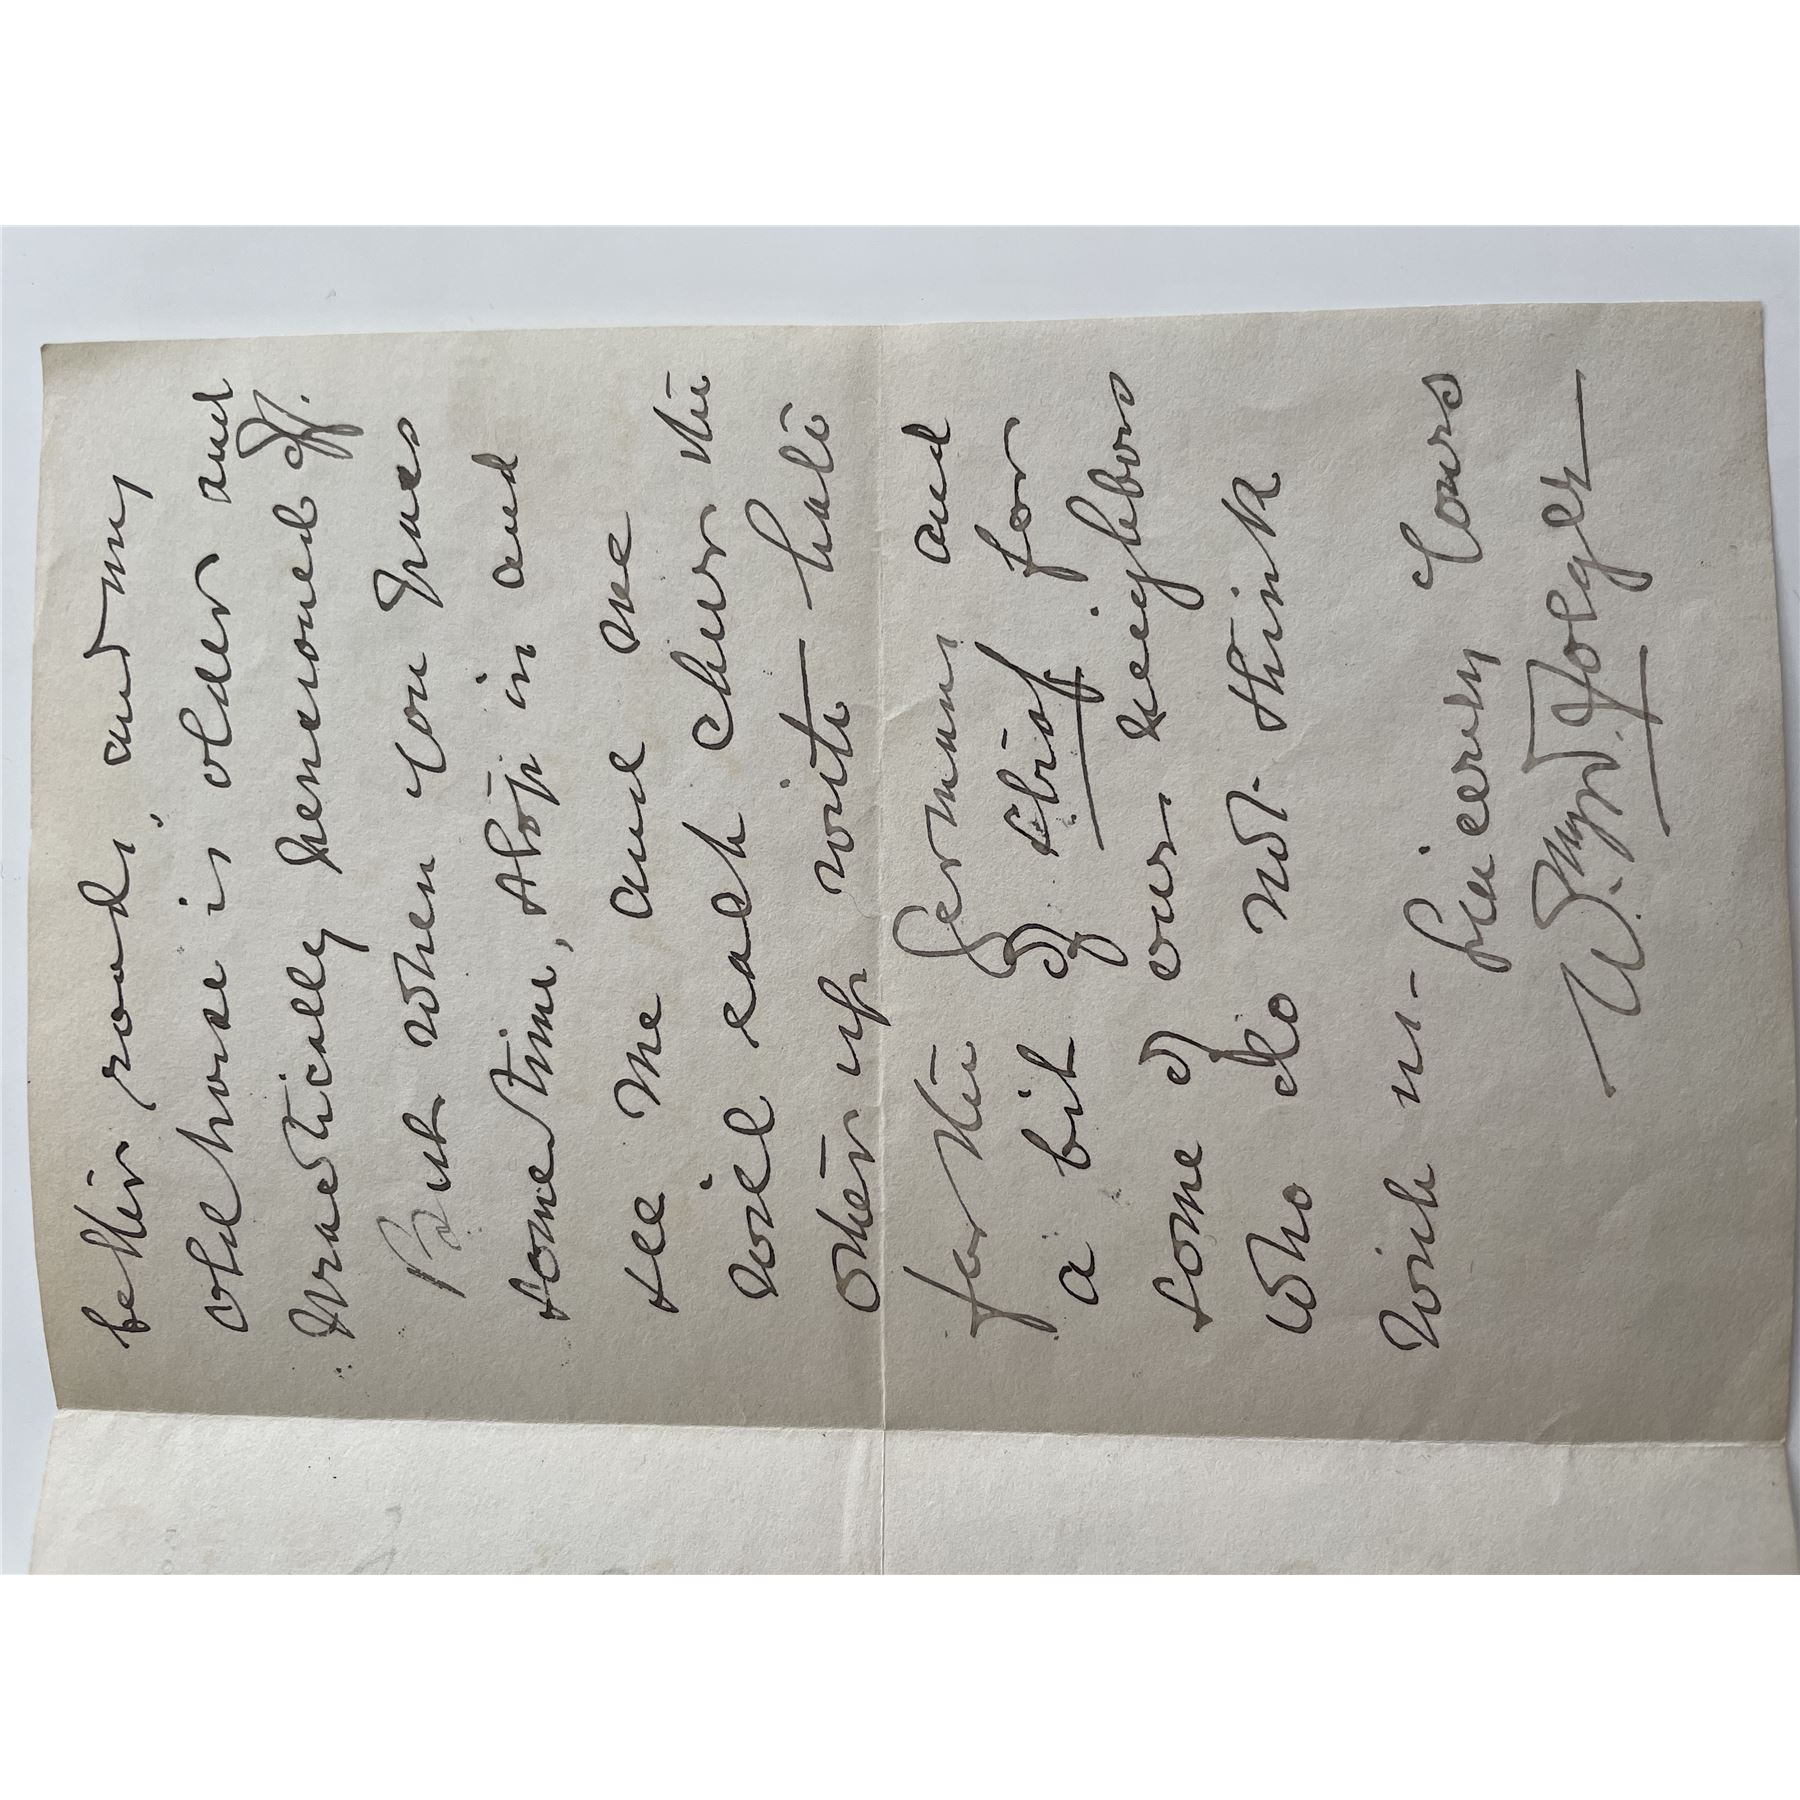 better roads, and my
old horse is older and
practically pensioned off.
But when you pass
some time, stop in and
see me and we
will each cheer the
other up with hate
for the Germans and
a bit of for
some of our neighbors
who do not think
with us - Sincerely Yours
W. Folger